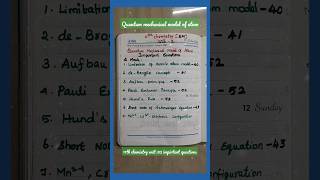 Quantum mechanical model of atom
11th chemistry (EM)
Unit - 2
Quantum Mechanical Model of Atom
Important Questions
1. Limitation of Bohr's atom model - 40
2. de-Broglie concept - 41
3. Aufbau principle - 52
4. Pauli Exclusion Principle - 52
5. Hund's Rule - 52
6. Short note of Equation - 43
7. electronic configuration
11th chemistry unit-2(2 important questions
1. Limitation
2. de-Brog
3. Aufbau
4. Pauli E
5. Hund's
6. Short No
model - 40
- 41
52
- 52
12 Sunday
Equation - 43